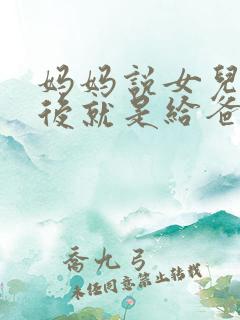 妈妈説女兒
後就是給爸
喬九弓
未经同意禁止转载